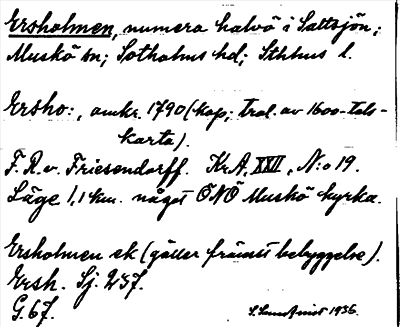 Ersholmen, numera halvö i Saltsjön;
Muskö sn; Sotholms hd; Sthlms l.
Ersho:, omkr. 1790 (kop; trol. av 1600-tals-
karta).
F. R. v. Friesendorff. Kr.A, XXII, N:o 19.
Läge 1,1 km. något ÖNÖ Muskö kyrka.
Ersholmen ek (gäller främst bebyggelse).
Ersh. Sj. 237.
G. 67.
1936.